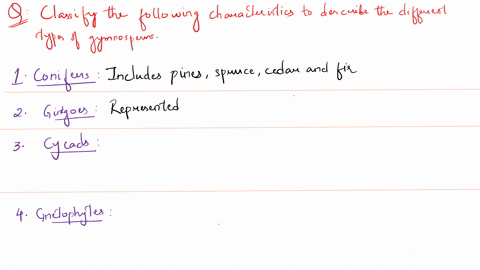 Q: Classify the following characteristics to describe the different
types of gymnosperms.
1. Conifers: Includes pines, spruce, cedar and fir
2. Ginkgoes: Represented
3. Cycads:
4. Gnetophytes: